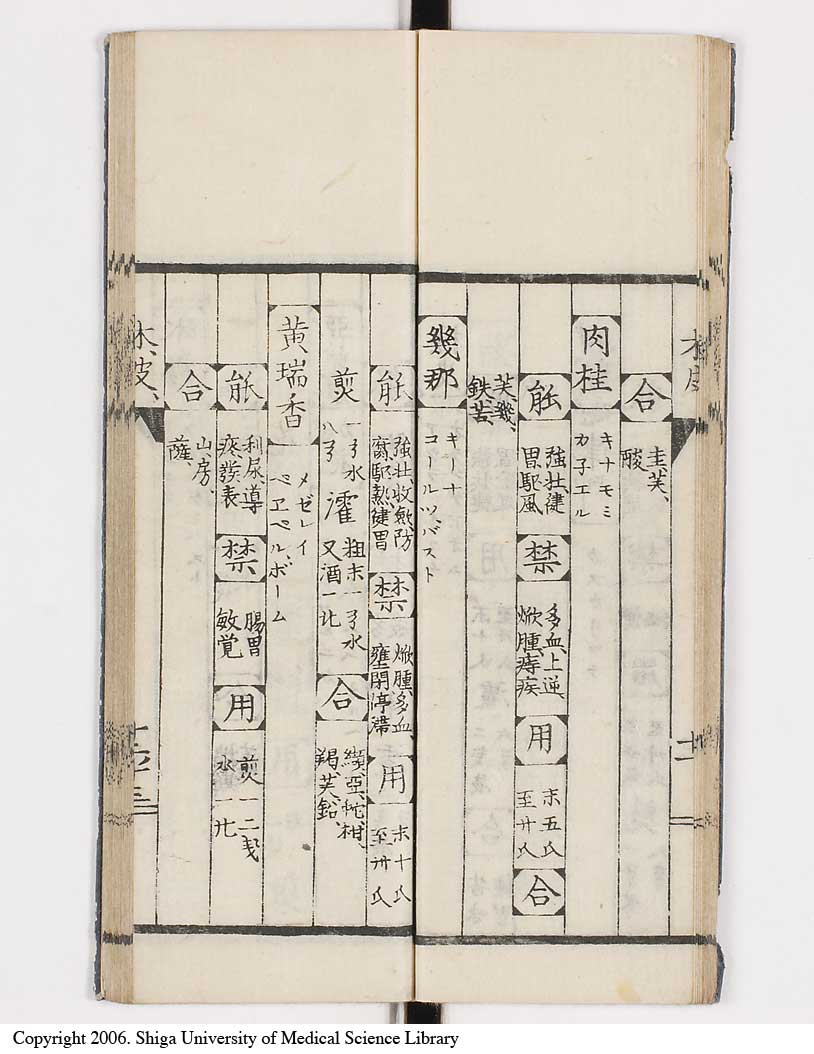 合 圭、芙、酸
肉桂 キナモミ カ子エル
能 強壮、健胃、駆風 禁 多血、上逆、焮腫、痔疾 用 末五氏至卅氏 合
芙、幾、鉄、苦、
幾那 キーナ コールツ、バスト
能 強壮、收斂、防腐、駆熱、健胃 禁 焮腫、多血、壅閉、停滞 用 末十氏至卅氏
煎 一ヲ水八ヲ 濯 粗末一ヲ水 又酒一 合 纈、亞、蛇、柑、羯、芙、鉛、
黄瑞香 メゼレイ ペエペルボーム
能 利尿、導疼、發表 禁 腸胃敏覚 用 煎一二戔水一
合 山、房、薩、
木皮、
Copyright 2006. Shiga University of Medical Science Library